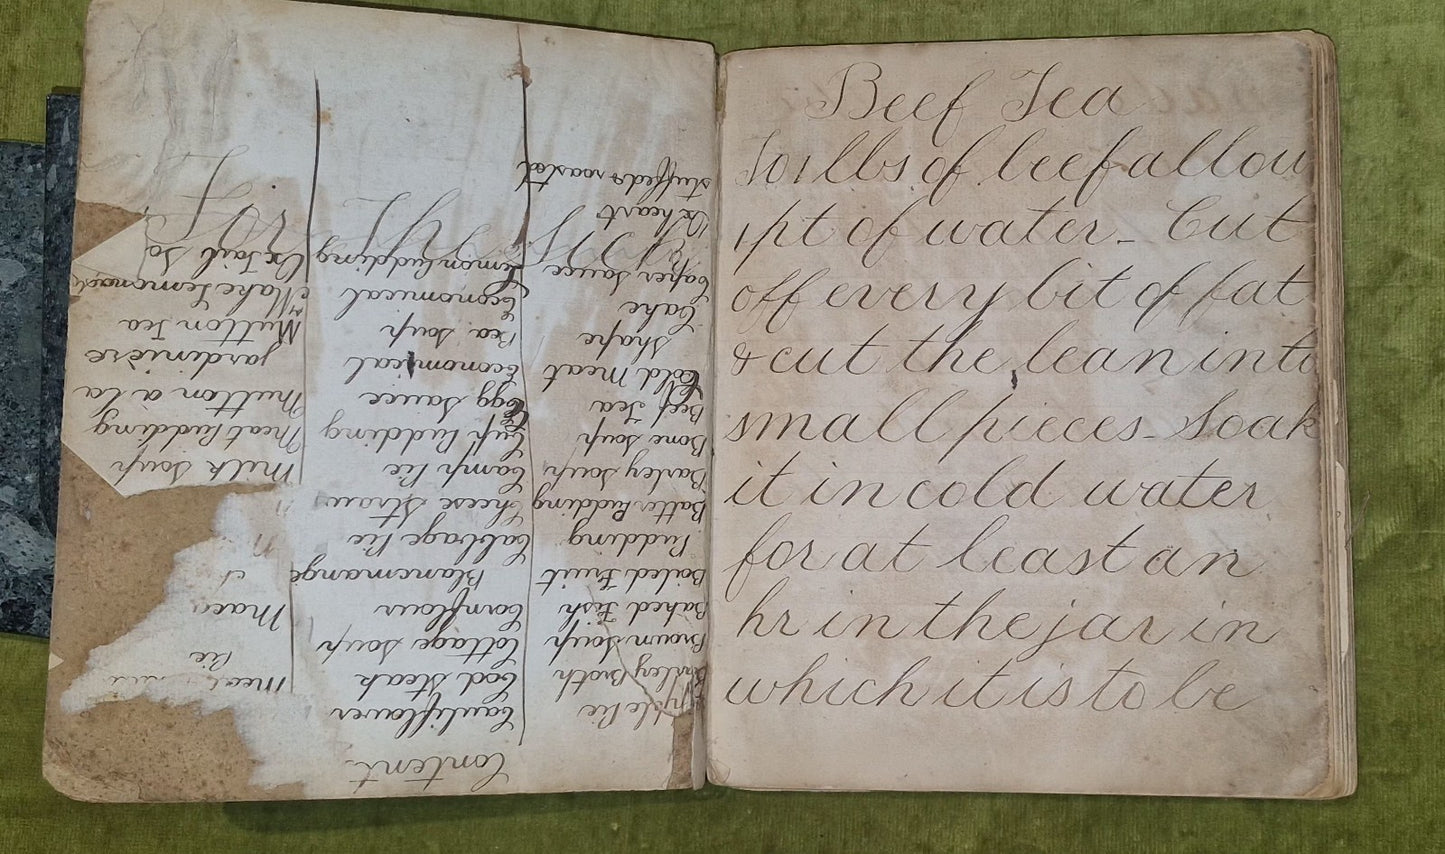 Content
Pie
Barley Broth
Brown Soup
Baked Fish
Boiled Fruit
Pudding
Batter Pudding
Barley Soup
Bone Soup
Beef Tea
Cold Meat
Shape
Cake
Caper Sauce
Ox heart
stuffed & roasted
Cauliflower
Cod Steak
Cottage Soup
Cornflour
Blancmange
Cabbage Pie
Cheese Straws
Camp Pie
Cup Pudding
Egg Sauce
Economical
Pea Soup
Economical
Lemon Pudding
Meat
Pie
Maca
Milk Soup
Meat Pudding
Mutton à la
jardinière
Mutton Tea
Make Lemonade
Ox Tail So
Beef Tea
To 1 lbs of beef allow
1 pt of water - Cut
off every bit of fat
& cut the lean into
small pieces - Soak
it in cold water
for at least an
hr in the jar in
which it is to be